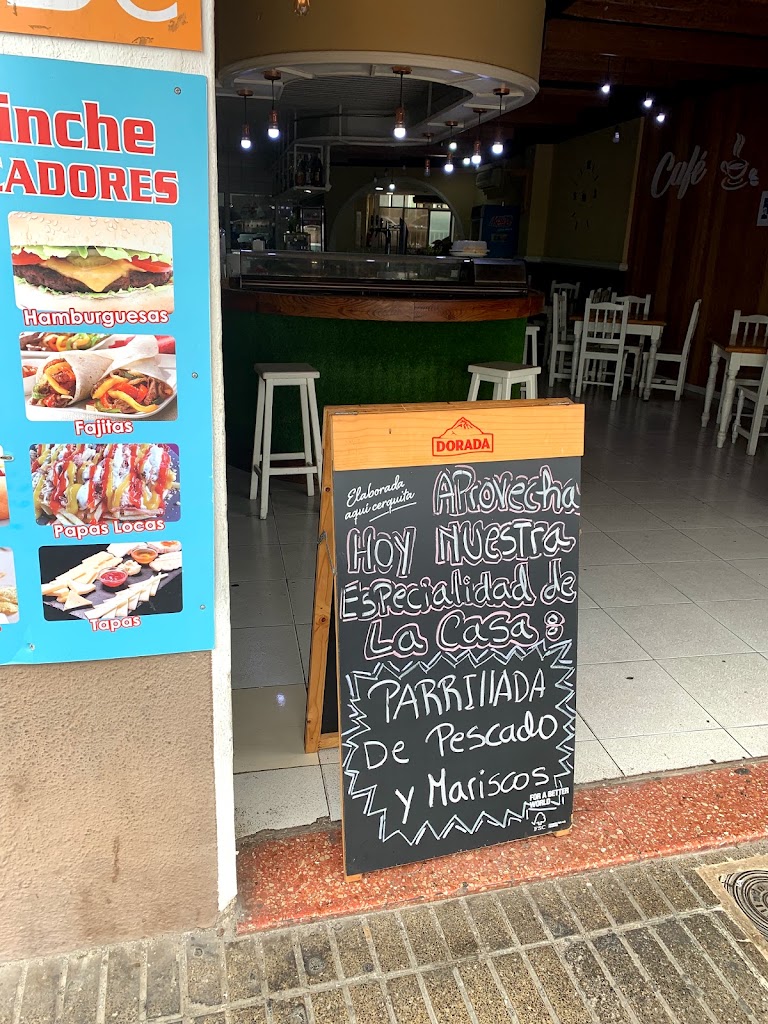 inche
CADORES
Hamburguesas
Fajitas
Papas Locas
Tapas
Café
DORADA
Elaborada
aquí cerquita
APROVECHA
HOY NUESTRA
ESPECIALIDAD de
La Casa:
PARRILLADA
De Pescado
y Mariscos
FOR A BETTER
WORLD
FSC